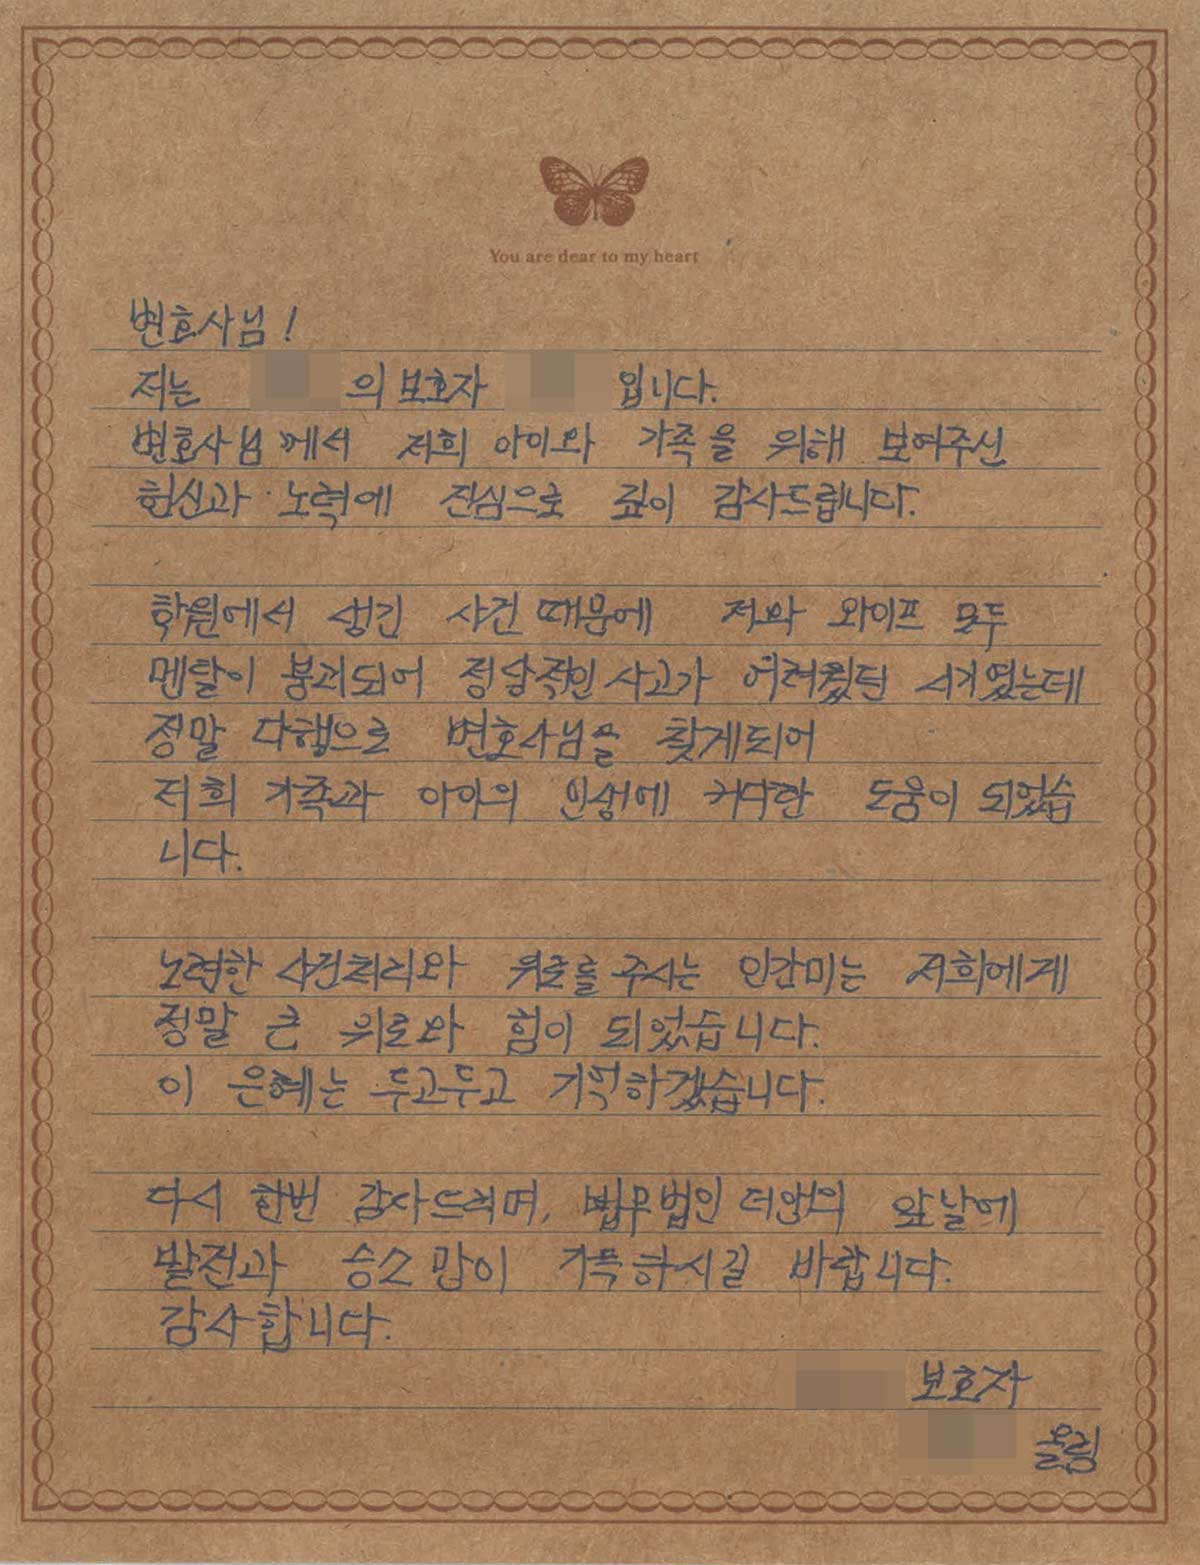 You are dear to my heart
변호사님!
저는 의 보호자 입니다.
변호사님께서 저희 아이와 가족을 위해 보여주신
헌신과 노력에 진심으로 깊이 감사드립니다.
학원에서 생긴 사건 때문에 저와 와이프 모두
멘탈이 붕괴되어 정상적인 사고가 어려웠던 시기였는데
정말 다행으로 변호사님을 찾게되어
저희 가족과 아이의 인생에 커다란 도움이 되었습
니다.
노련한 사건처리와 위로를 주시는 인간미는 저희에게
정말 큰 위로와 힘이 되었습니다.
이 은혜는 두고두고 기억하겠습니다.
다시 한번 감사드리며, 법무법인 더앤의 앞날에
발전과 승소만이 가득하시길 바랍니다.
감사합니다.
보호자
올림